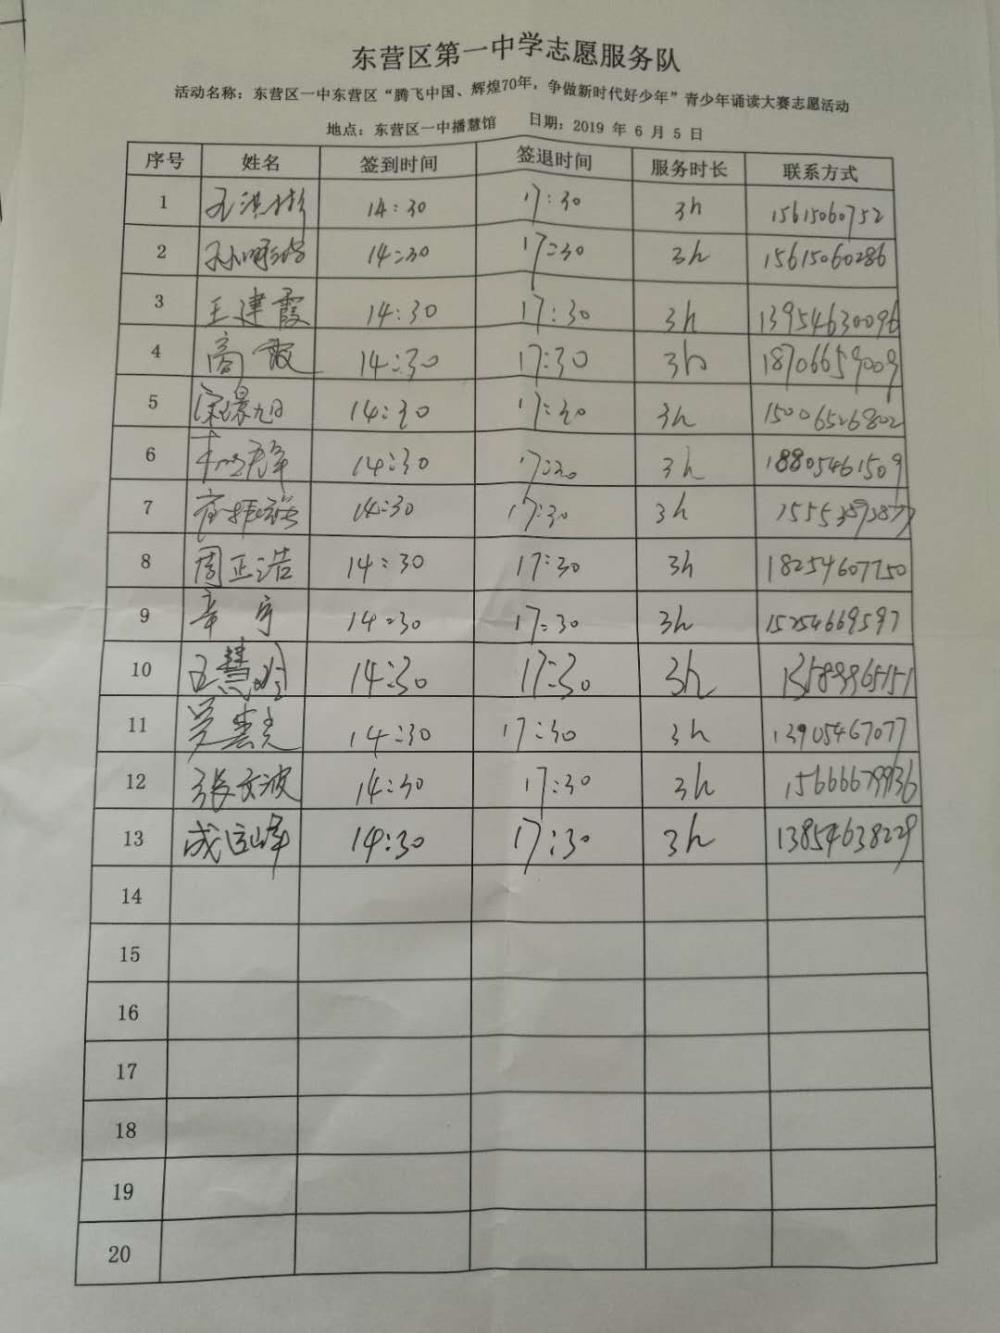 东营区第一中学志愿服务队
活动名称：东营区一中东营区“腾飞中国、辉煌70年，争做新时代好少年”青少年诵读大赛志愿活动
地点：东营区一中播慧馆 日期：2019 年 6 月 5 日
序号 姓名 签到时间 签退时间 服务时长 联系方式
1 14:30 17:30 3h 15615060752
2 14:30 17:30 3h 15615060286
3 王建霞 14:30 17:30 3h 13954630096
4 高霞 14:30 17:30 3h 18706659009
5 14:30 17:30 3h 15006526802
6 14:30 17:30 3h 18805461509
7 14:30 17:30 3h
8 周正浩 14:30 17:30 3h 18254607750
9 章宇 14:30 17:30 3h 15254669597
10 王慧玲 14:30 17:30 3h
11 14:30 17:30 3h 13905467077
12 张文波 14:30 17:30 3h 15666679936
13 成远峰 14:30 17:30 3h 13854638229
14
15
16
17
18
19
20